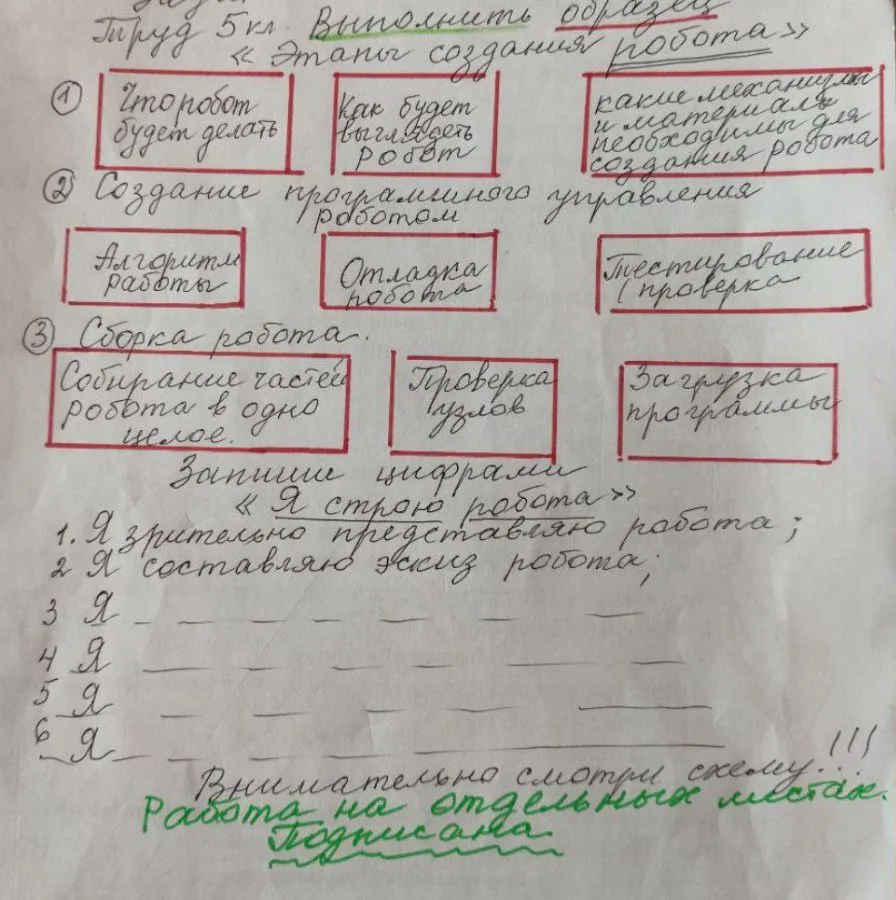 Труд 5 кл. Выполнить образец
« Этапы создания робота»
① Что робот
будет делать
Как будет
выглядеть
робот
какие механизмы
и материалы
необходимы для
создания робота
② Создание программного управления
роботом
Алгоритм
работы
Отладка
робота
Тестирование
(проверка
③ Сборка робота.
Собирание частей
робота в одно
целое.
Проверка
узлов
Загрузка
программы
Запиши цифрами
« Я строю робота»
1. Я зрительно представляю робота;
2 Я составляю эскиз робота;
3 Я
4 Я
5 Я
6 Я
Внимательно смотри схему!!!
Работа на отдельных листах.
Подписана